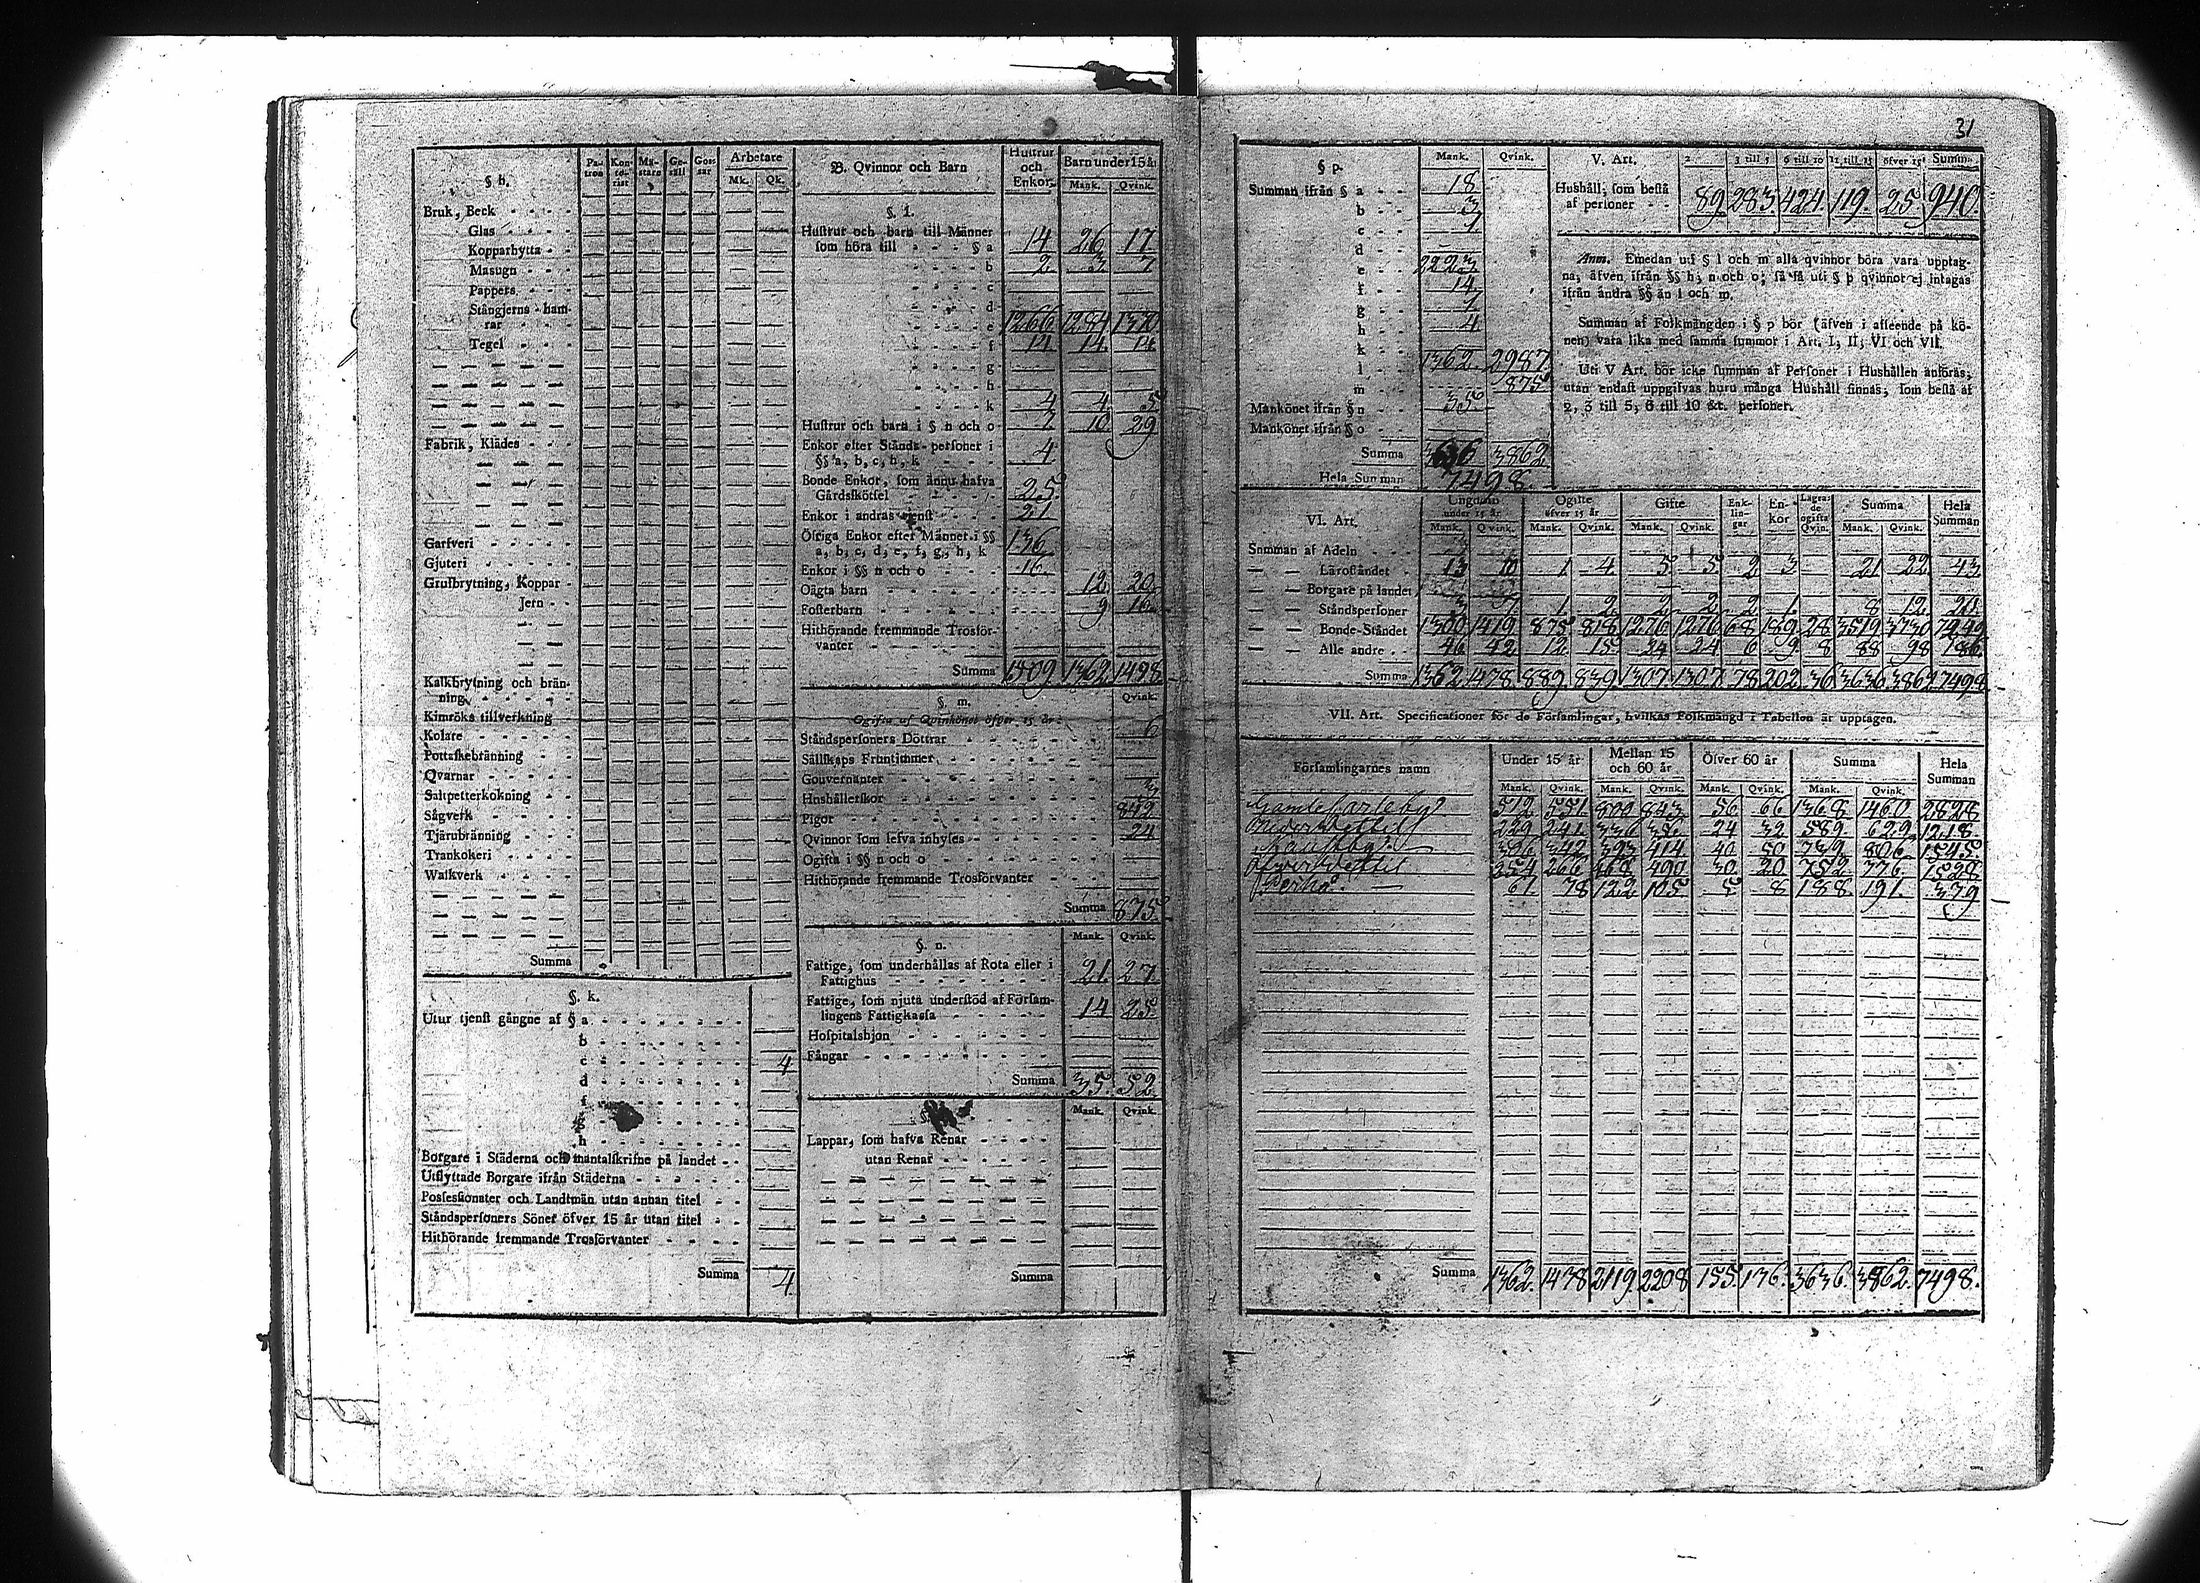 31
§ h.
Pa-tron Kon-to-rist Mä-stare Ge-säll Gos-sar Arbetare
Mk. Qk.
Bruk, Beck
Glas
Kopparhytta
Masugn
Pappers
Stångjerns-ham-
rar
Tegel
Fabrik, Klädes
Garfveri
Gjuteri
Grufbrytning, Koppar
Jern
Kalkbrytning och brän-
ning
Kimröks tillverkning
Kolare
Pottaskebränning
Qvarnar
Saltpetterkokning
Sågverk
Tjärubränning
Trankokeri
Walkverk
Summa
§. k.
Utur tjenst gångne af § a
b
c 4
d
f
g
h
Borgare i Städerna och mantalskrifne på landet
Utflyttade Borgare ifrån Städerna
Possessionater och Landtmän utan annan titel
Ståndspersoners Söner öfver 15 år utan titel
Hithörande fremmande Trosförvanter
Summa 4
B. Qvinnor och Barn Hustrur och Enkor Barn under 15 år
Mank. Qvink.
§. l.
Hustrur och barn till Männer
som höra till § a 14 26 17
b 2 3 7
c
d
e 1266 1284
f 14 14 14
g
h
k 4 4 5
Hustrur och barn i § n och o 10 29
Enkor efter Stånds-personer i
§§ a, b, c, h, k 4
Bonde Enkor, som ännu hafva
Gårdsskötsel 25
Enkor i andras tjenst 21
Öfriga Enkor efter Männer i §§
a, b, c, d, e, f, g, h, k 136
Enkor i §§ n och o 16
Oägta barn 12 20
Fosterbarn 9 16
Hithörande fremmande Trosför-
vanter
Summa 1509 1362 1498
§. m.
Ogifta af Qvinkönet öfver 15 år: Qvink.
Ståndspersoners Döttrar 6
Sällskaps Fruntimmer
Gouvernanter
Hushållerskor 3
Pigor 842
Qvinnor som lefva inhyses 24
Ogifta i §§ n och o
Hithörande fremmande Trosförvanter
Summa 875
§. n. Mank. Qvink.
Fattige, som underhållas af Rota eller i
Fattighus 21 27
Fattige, som njuta understöd af Försam-
lingens Fattigkassa 14 25
Hospitalshjon
Fångar
Summa 35 52
Mank. Qvink.
Lappar, som hafva Renar
utan Renar
Summa
§ p. Mank. Qvink.
Summan ifrån § a 18
b 3
c 1
d
e 2223
f 14
g 1
h 4
k
l 1362 2987
m 875
Mankönet ifrån § n 35
Mankönet ifrån § o
Summa 3636 3862
Hela Summan 7498
V. Art. 2 3 till 5 6 till 10 11 till 15 öfver 15 Summa
Hushåll, som bestå
af personer 89 283 424 119 25 940
Anm. Emedan uti § l och m alla qvinnor böra vara upptag-
na, äfven ifrån §§ h, n och o; så få uti § p qvinnor ej intagas
ifrån andra §§ än l och m.
Summan af Folkmängden i § p bör (äfven i afseende på kö-
nen) vara lika med samma summor i Art. I, II, VI och VII.
Uti V Art. bör icke summan af Personer i Hushållen anföras,
utan endast uppgifvas huru många Hushåll finnas, som bestå af
2, 3 till 5, 6 till 10 &c. personer.
VI. Art. Ungdom under 15 år Ogifte öfver 15 år Gifte Enk-lin-gar En-kor Lägrade ogifta Qvin. Summa Hela Summan
Mank. Qvink. Mank. Qvink. Mank. Qvink. Mank. Qvink.
Summan af Adeln
— — Läroståndet 13 10 1 4 5 5 2 3 21 22 43
— — Borgare på landet
— — Ståndspersoner 3 7 1 2 2 2 2 1 8 12 20
— — Bonde-Ståndet 1300 1419 875 818 1276 1276 68 189 28 3519 3730 7249
— — Alle andre 46 42 12 15 24 24 6 9 8 88 98 186
Summa 1362 1478 889 839 1307 1307 78 202 36 3636 3862 7498
VII. Art. Specificationer för de Församlingar, hvilkas Folkmängd i Tabellen är upptagen.
Församlingarnes namn Under 15 år Mellan 15 och 60 år Öfver 60 år Summa Hela Summan
Mank. Qvink. Mank. Qvink. Mank. Qvink. Mank. Qvink.
Gamlekarleby 512 551 800 843 56 66 1368 1460 2828
Nedervettil 229 241 336 356 24 32 589 629 1218
Kaustby 306 342 393 414 40 50 739 806 1545
Öfvervettil 254 266 468 490 30 20 752 776 1528
Perho 61 78 122 105 5 8 188 191 379
Summa 1362 1478 2119 2208 155 176 3636 3862 7498